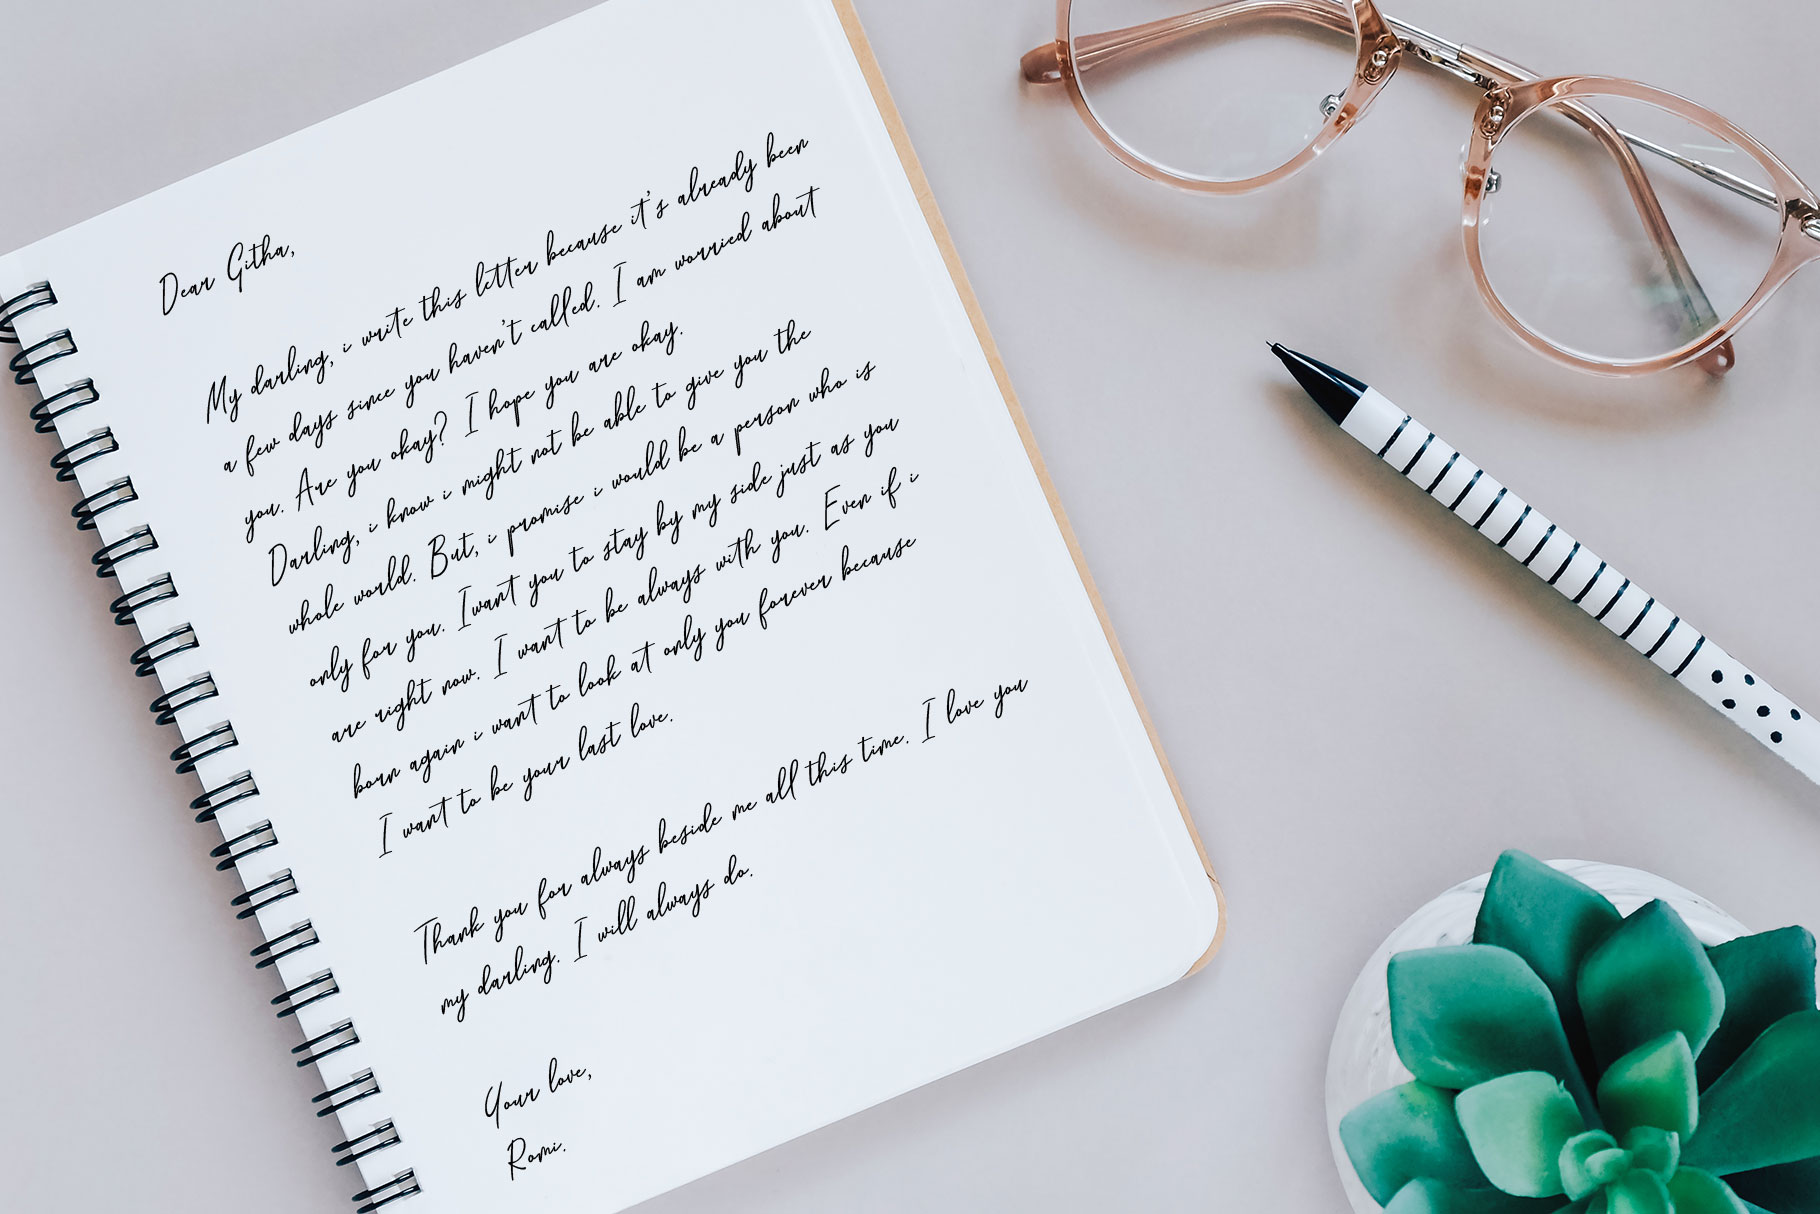 Dear Githa,
My darling, i write this letter because it's already been
a few days since you haven't called. I am worried about
you. Are you okay? I hope you are okay.
Darling, i know i might not be able to give you the
whole world. But, i promise i would be a person who is
only for you. Iwant you to stay by my side just as you
are right now. I want to be always with you. Even if i
born again i want to look at only you forever because
I want to be your last love.
Thank you for always beside me all this time. I love you
my darling. I will always do.
Your love,
Romi.